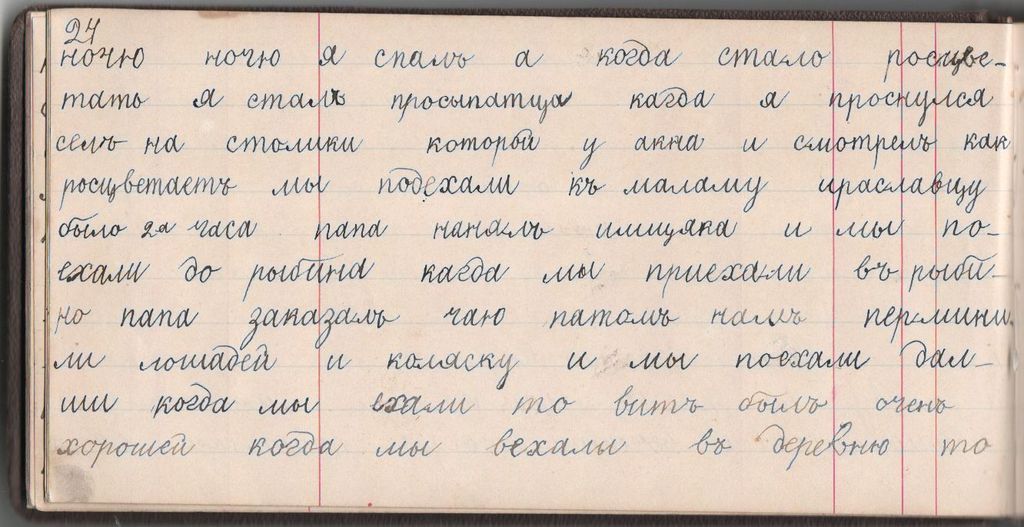 24
ночю ночю я спалъ а когда стало росцве-
тать я сталъ просыпатца кагда я проснулся
селъ на столики которой у акна и смотрелъ как
росцветаетъ мы подехали къ маламу ираславцу
было 2а часа папа нанялъ имщяка и мы по-
ехали до рыбина кагда мы приехали въ рыби-
но папа заказалъ чаю патомъ намъ перминн
ли лошадей и коляску и мы поехали дал-
ши когда мы ехали то витъ былъ очень
хорошей когда мы вехалы въ деревню то